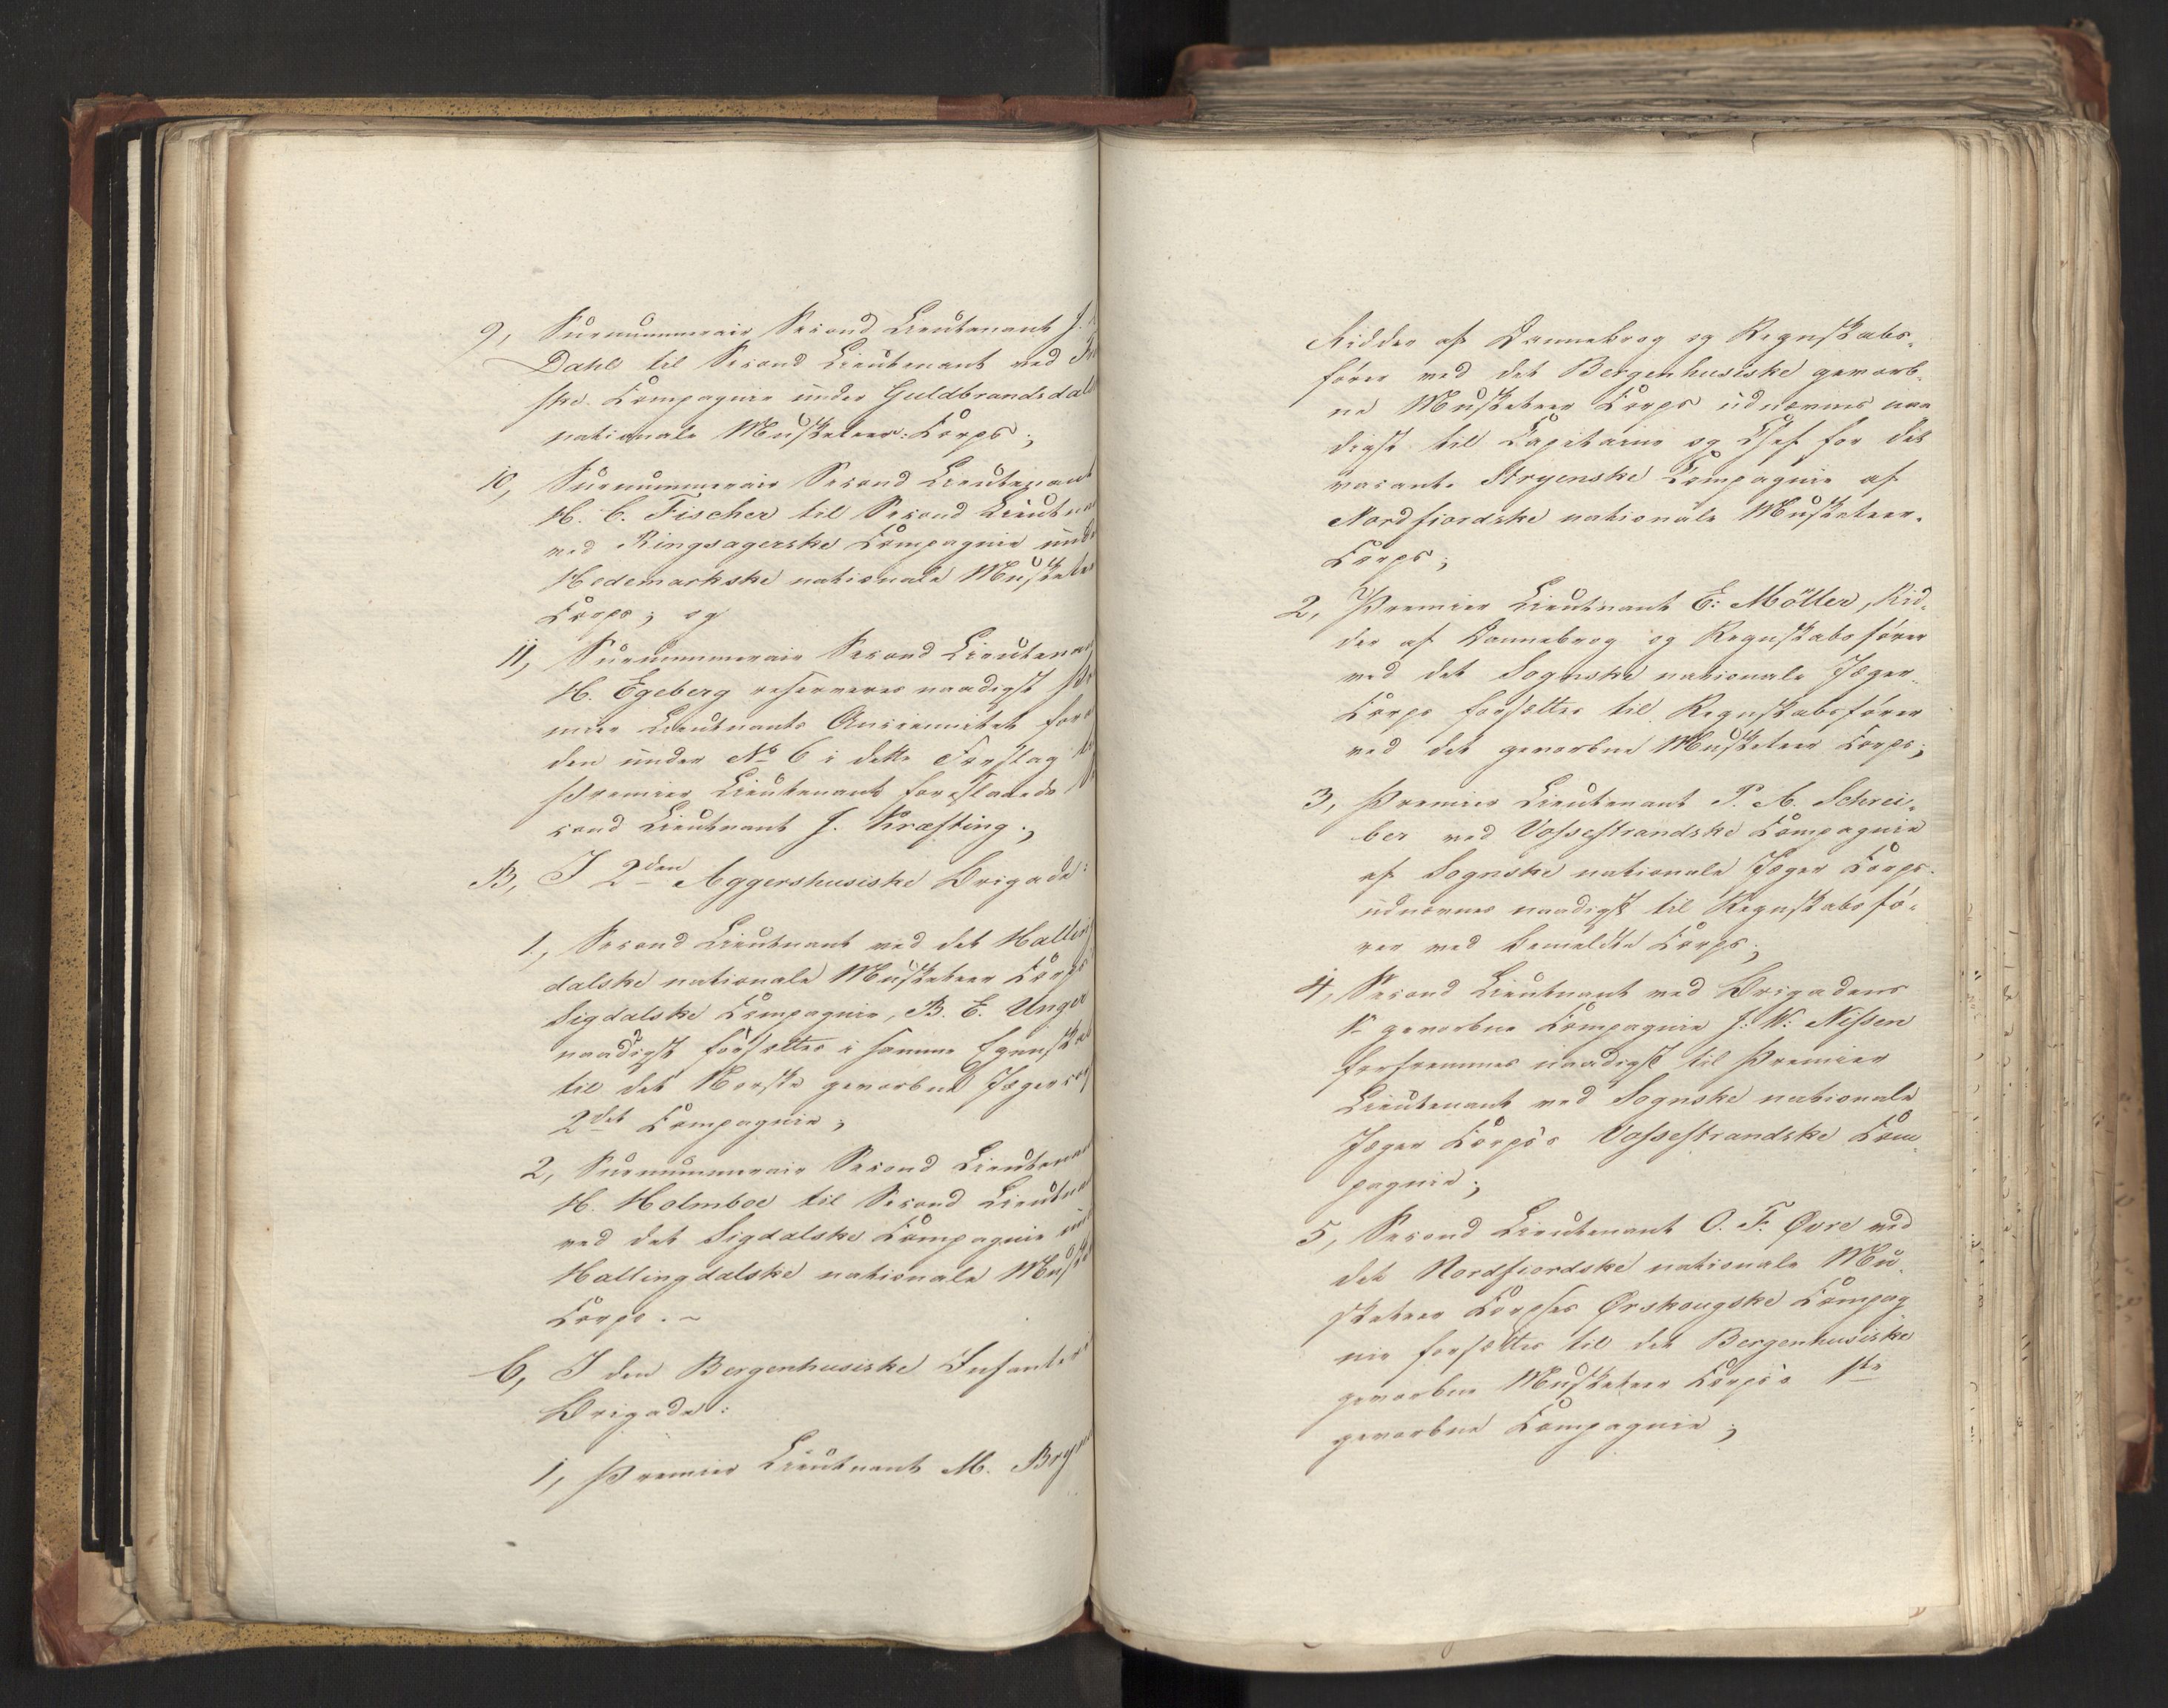 9, Surnummerair Second Lieutenant J.
Dahl til Second Lieutenant ved
ske Compagnie under Guldbrandsdal
nationale Musketeer-Corps;
10, Surnummerair Second Lieutenant
H. C. Fischer til Second Lieutna
ved Ringsagerske Compagnie unde
Hedemarkske nationale Muskete
Corps; og
11, Surnummerair Second Lieutenan
H. Egeberg reserveres naadigst Pr
mier Lieutnants Anciennitet for
den under No 6 i dette Forslag
Premier Lieutenant foreslaaede
cond Lieutnant J. Kræfting;
B, I 2den Aggershusiske Brigade:
1, Second Lieutnant ved det Halling
dalske nationale Musketeer Corps
Sigdalske Compagnie, B. E. Unger
naadigst forsættes i samme Egenska
til det Norske gevorbne Jægercor
2det Compagnie;
2, Surnummerair Second Lieutenan
H. Holmboe til Second Lieutna
ved det Sigdalske Compagnie und
Hallingdalske nationale Musket
Corps.
C, I den Bergenhusiske Infanteri
Brigade:
1, Premier Lieutnant M. Bryn
Ridder af Dannebrog og Regnskabs-
fører ved det Bergenhusiske gevorb-
ne Musketeer Corps udnævnes naa
digst til Capitaine og Chef for det
vacante Stryenske Compagnie af
Nordfiordske nationale Musketeer-
Corps;
2, Premier Lieutnant E: Möller, Rid-
der af Dannebrog og Regnskabsfører
ved det Sognske nationale Jæger-
Corps forsættes til Regnskabsfører
ved det gevorbne Musketeer Corps;
3, Premier Lieutenant P. A. Schrei-
ber ved Vossestrandske Compagnie
af Sognske nationale Jæger Corps
udnævnes naadigst til Regnskabsfø-
rer ved bemeldte Corps;
4, Second Lieutnant ved Brigadens
1e gevorbne Compagnie J: W: Nissen
forfremmes naadigst til Premier
Lieutenant ved Sognske nationale
Jæger Corps's Vossestrandske Com-
pagnie;
5, Second Lieutenant O. F. Øvre ved
det Nordfiordske nationale Mu-
sketeer Corpses Ørskougske Compag
nie forsættes til det Bergenhusiske
gevorbne Musketeer Corps's 1ste
gevorbne Compagnie;